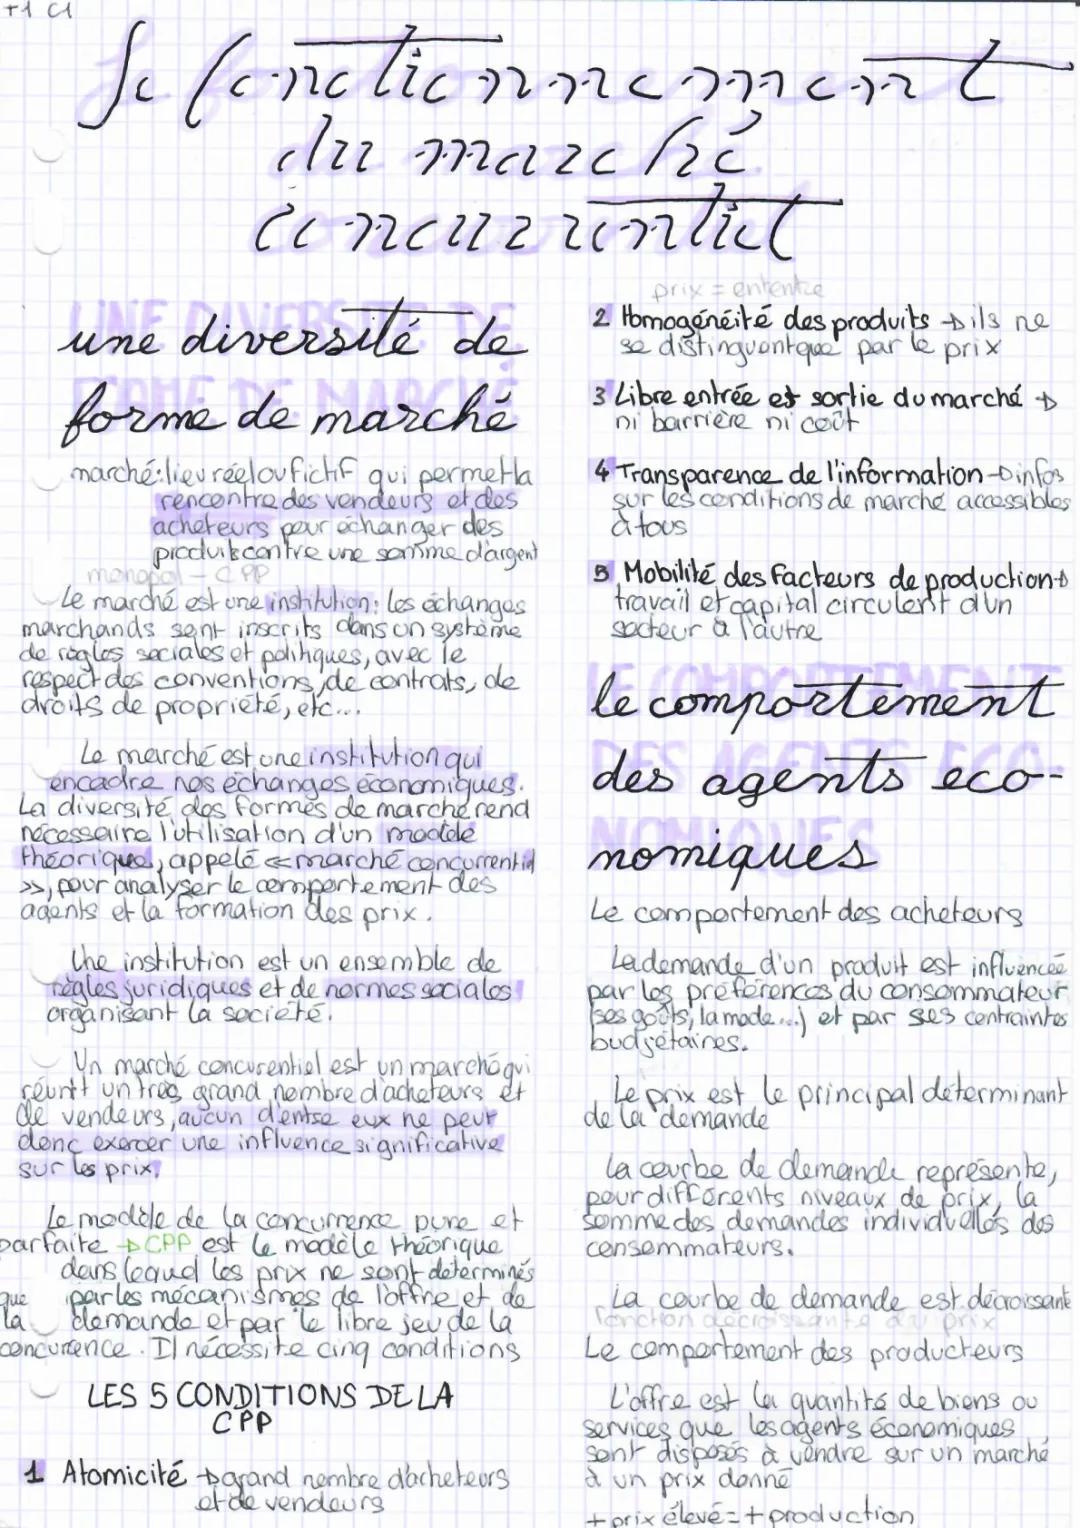 T1 C1
Le fonctionnement
du marché
concurrentiel
une diversité de
forme de marché
marché: lieu réel ou fictif qui permet la
rencontre des vendeurs et des
acheteurs pour échanger des
produits contre une somme d'argent
monopol - CPP
Le marché est une institution: les échanges
marchands sont inscrits dans un système
de règles sociales et politiques, avec le
respect des conventions, de contrats, de
droits de propriété, etc...
Le marché est une institution qui
encadre nos échanges économiques.
La diversité des formes de marché rend
nécessaire l'utilisation d'un modèle
théorique, appelé « marché concurrentiel
», pour analyser le comportement des
agents et la formation des prix.
Une institution est un ensemble de
règles juridiques et de normes sociales
organisant la société.
Un marché concurentiel est un marché qui
réunit un très grand nombre d'acheteurs et
de vendeurs, aucun d'entre eux ne peut
donc exercer une influence significative
sur les prix.
Le modèle de la concurrence pure et
parfaite → CPP est le modèle théorique
dans lequel les prix ne sont déterminés
que par les mécanismes de l'offre et de
la demande et par le libre jeu de la
concurence. Il nécessite cinq conditions
LES 5 CONDITIONS DE LA
CPP
1 Atomicité → grand nombre d'acheteurs
et de vendeurs
prix = ententre
2 Homogénéité des produits → ils ne
se distinguent que par le prix
3 Libre entrée et sortie du marché →
ni barrière ni coût
4 Transparence de l'information → infos
sur les conditions de marché accessibles
à tous
5 Mobilité des facteurs de production →
travail et capital circulent d'un
secteur à l'autre
le comportement
des agents eco-
nomiques
Le comportement des acheteurs
La demande d'un produit est influencée
par les préférences du consommateur
(ses goûts, la mode...) et par ses contraintes
budgétaires.
Le prix est le principal déterminant
de la demande
La courbe de demande représente,
pour différents niveaux de prix, la
somme des demandes individuelles des
consommateurs.
La courbe de demande est décroissante
fonction décroissante du prix
Le comportement des producteurs
L'offre est la quantité de biens ou
services que les agents économiques
sont disposés à vendre sur un marché
à un prix donné
+ prix élevé = + production